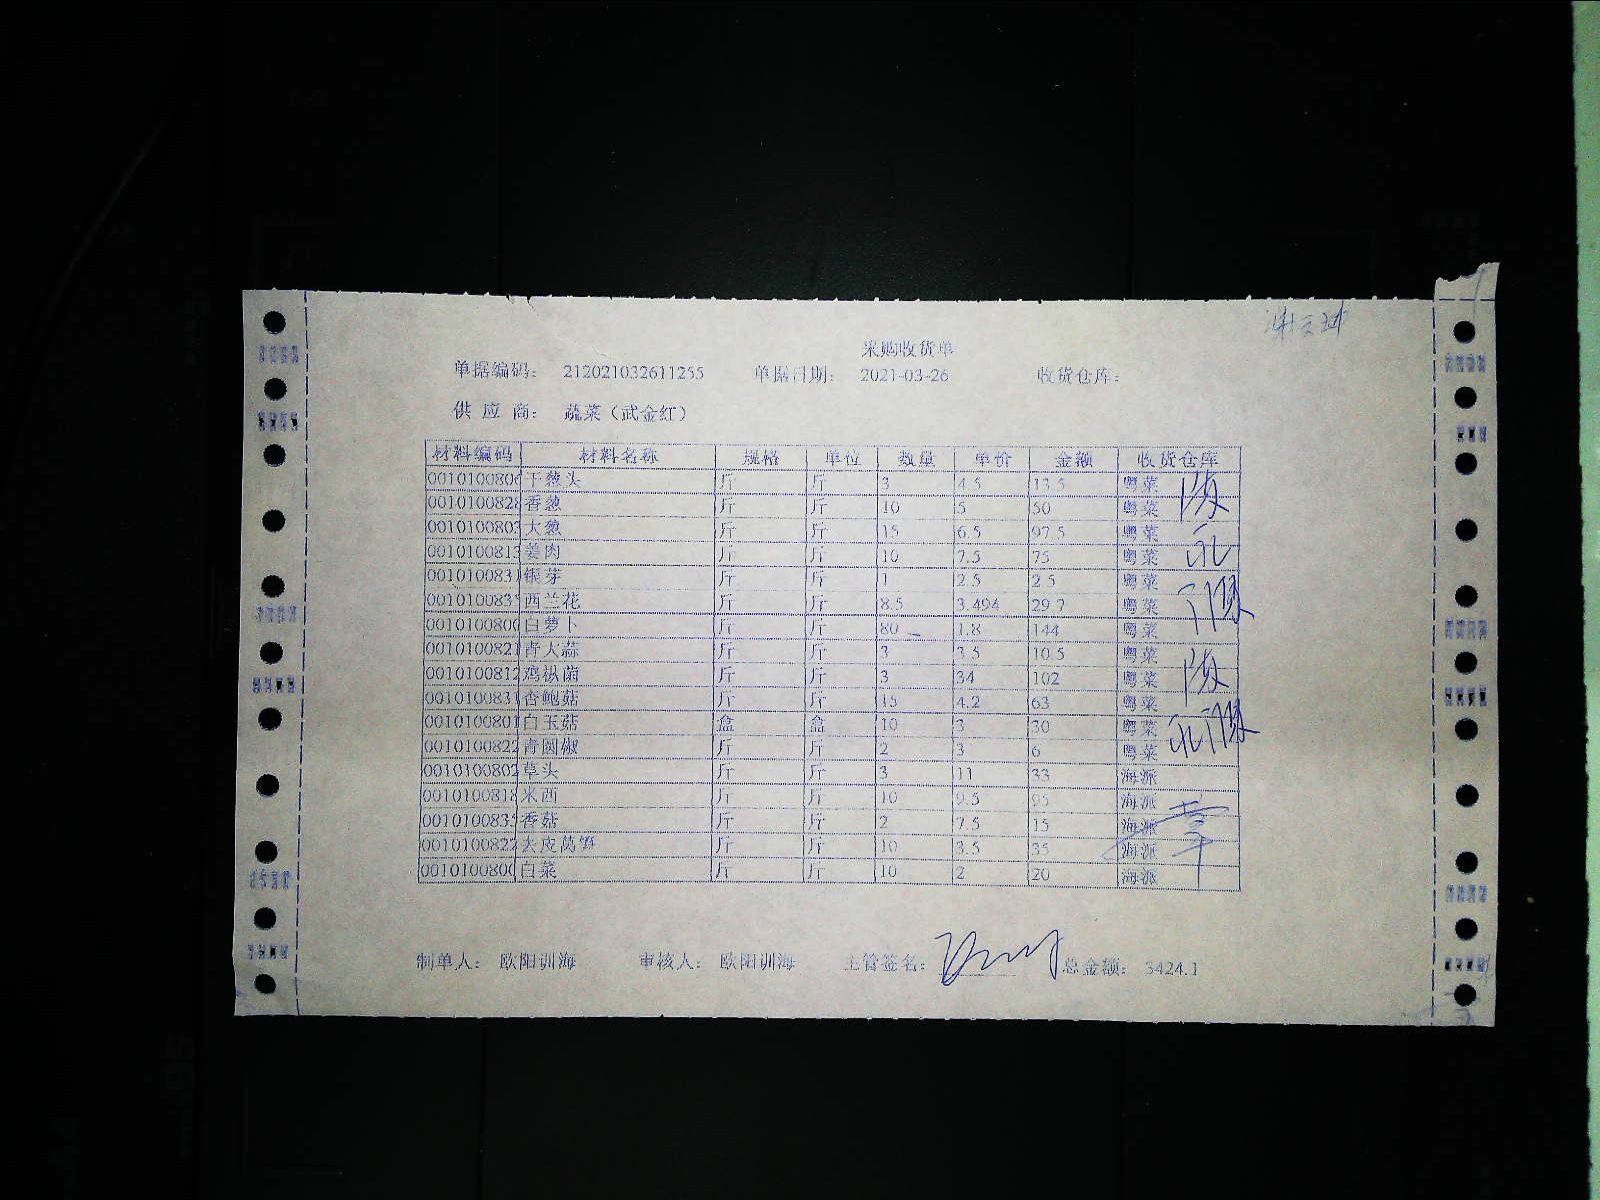 采购收货单
单据编码： 212021032611255 单据日期： 2021-03-26 收货仓库：
供 应 商： 蔬菜（武金红）
材料编码 材料名称 规格 单位 数量 单价 金额 收货仓库
0010100806 干葱头 斤 斤 3 4.5 13.5 粤菜
0010100828 香葱 斤 斤 10 5 50 粤菜
0010100803 大葱 斤 斤 15 6.5 97.5 粤菜
0010100813 姜肉 斤 斤 10 7.5 75 粤菜
001010083 银芽 斤 斤 1 2.5 2.5 粤菜
001010083 西兰花 斤 斤 8.5 3.494 29.7 粤菜
0010100800 白萝卜 斤 斤 80 1.8 144 粤菜
001010082 青大蒜 斤 斤 3 3.5 10.5 粤菜
0010100812 鸡枞菌 斤 斤 3 34 102 粤菜
001010083 杏鲍菇 斤 斤 15 4.2 63 粤菜
001010080 白玉菇 盒 盒 10 3 30 粤菜
0010100822 青圆椒 斤 斤 2 3 6 粤菜
0010100802 草头 斤 斤 3 11 33 海派
0010100818 米西 斤 斤 10 9.5 95 海派
001010083 香菇 斤 斤 2 7.5 15 海派
0010100822 去皮莴笋 斤 斤 10 3.5 35 海派
0010100800 白菜 斤 斤 10 2 20 海派
制单人： 欧阳训海 审核人： 欧阳训海 主管签名： 总金额： 3424.1